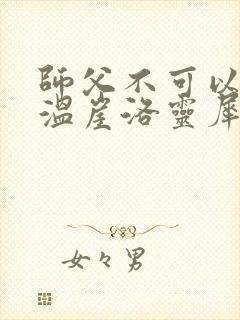 師父不可以
溫崖洛靈犀
女々男